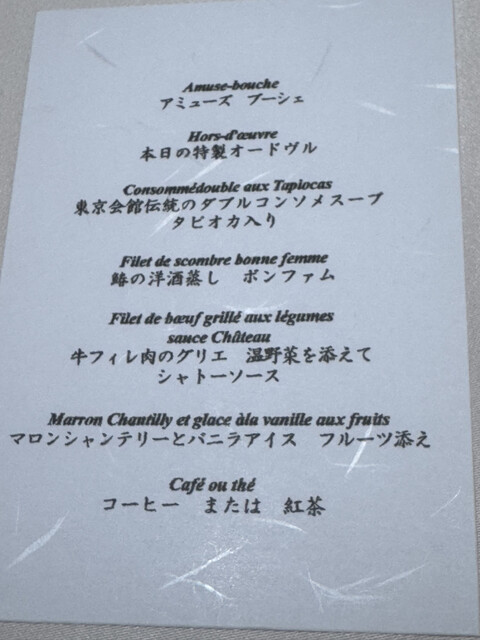 Amuse-bouche
アミューズ　ブーシェ
Hors-d'œuvre
本日の特製オードヴル
Consommédouble aux Tapiocas
東京会館伝統のダブルコンソメスープ
タピオカ入り
Filet de scombre bonne femme
鰆の洋酒蒸し　ボンファム
Filet de bœuf grillé aux légumes
sauce Château
牛フィレ肉のグリエ　温野菜を添えて
シャトーソース
Marron Chantilly et glace àla vanille aux fruits
マロンシャンテリーとバニラアイス　フルーツ添え
Café ou thé
コーヒー　または　紅茶